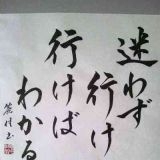 迷わず
行け
行けば
わかる